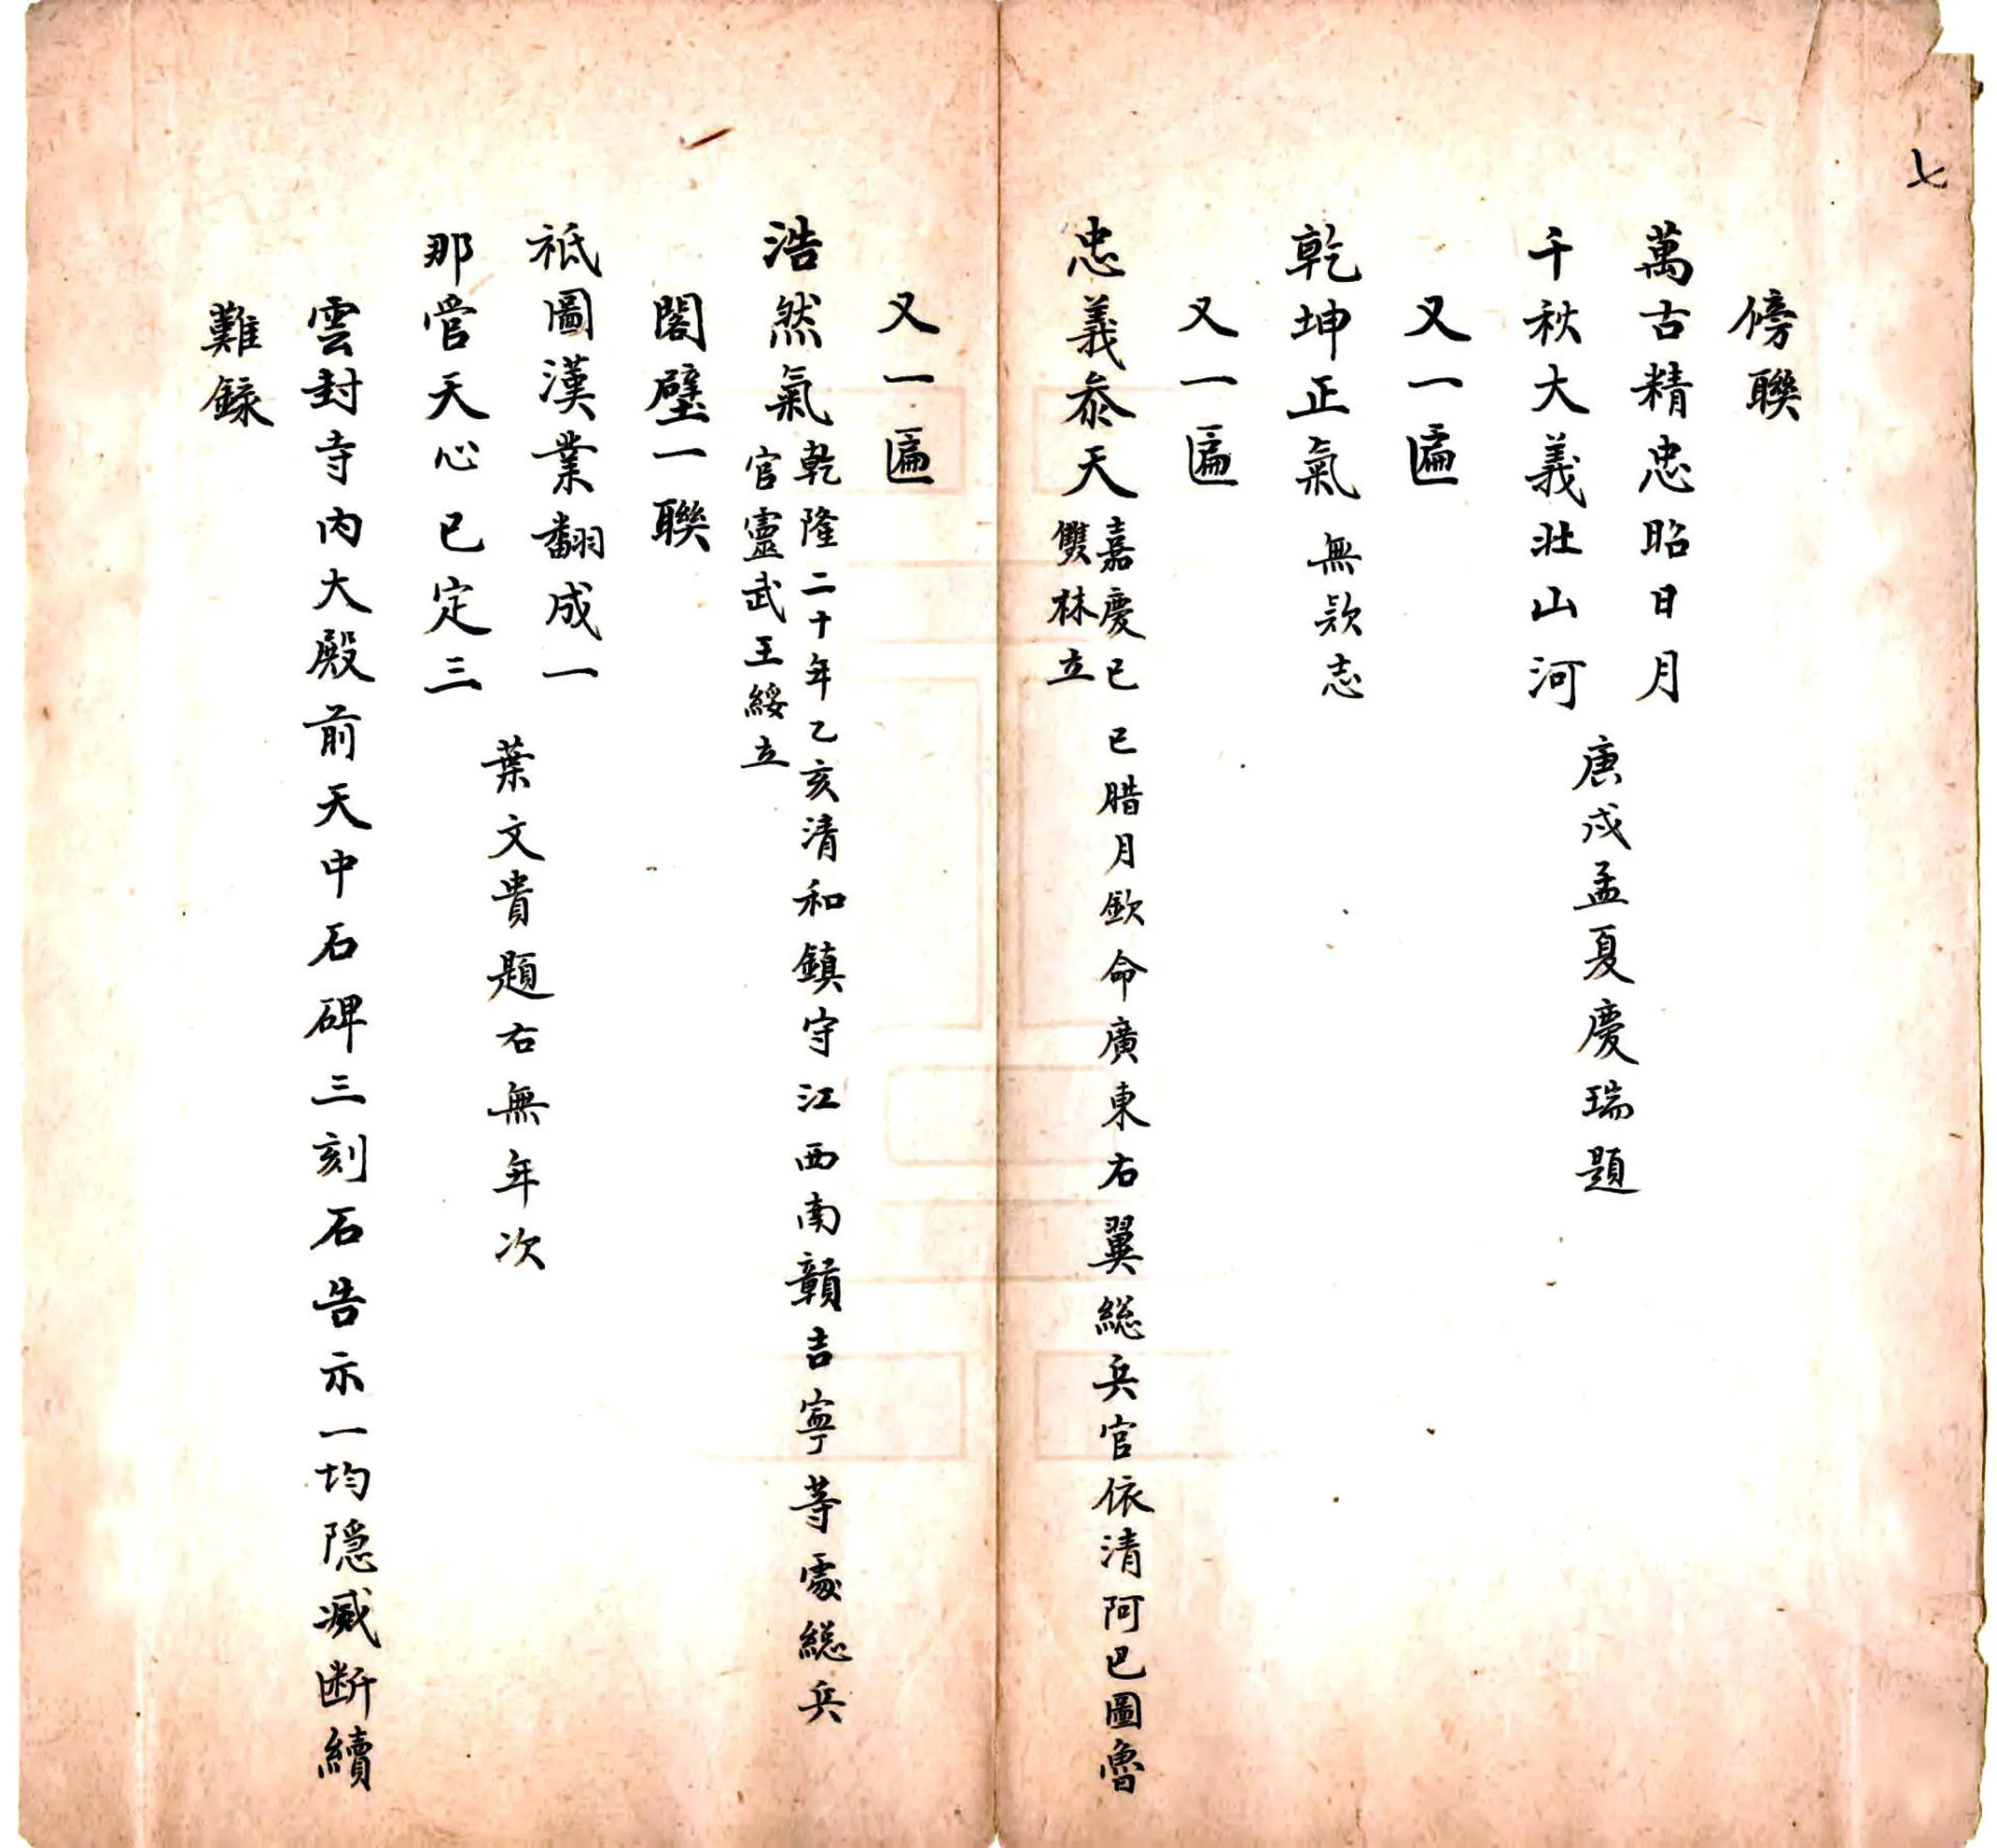 七
傍聯
萬古精忠昭日月
千秋大義壯山河
庚戌孟夏慶瑞題
又一匾
乾坤正氣 無欵志
又一匾
忠義叅天 嘉慶已巳腊月欽命廣東右翼総兵官依清阿巴圖魯
雙林立
又一匾
浩然氣 乾隆二十年乙亥清和鎮守江西南贛吉寧等處総兵
官靈武王綏立
閣壁一聯
祗圖漢業翻成一
那管天心已定三
葉文貴題右無年次
雲封寺內大殿前天中石碑三刻石告示一均隐滅断續
難録